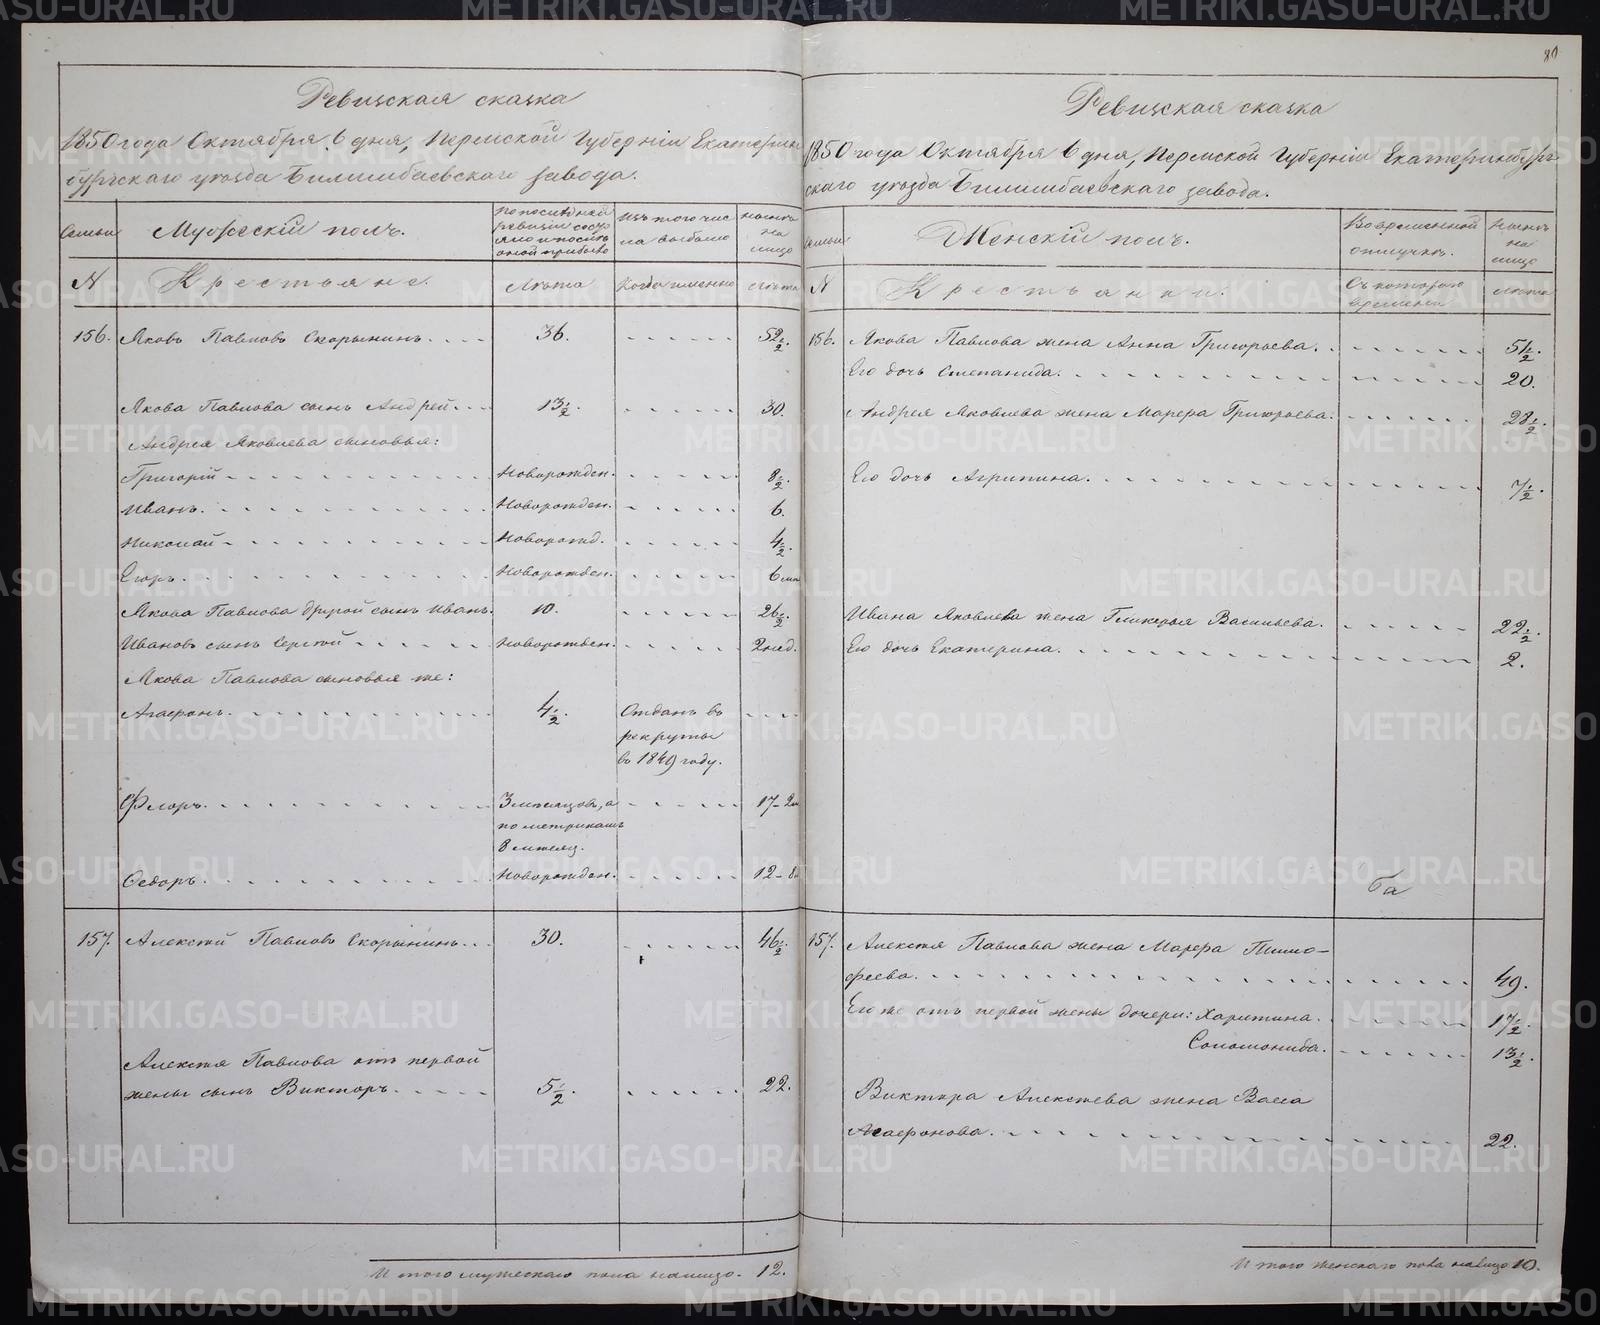 80
Ревизская сказка
1850 года Октября 6 дня, Пермской Губерніи Екатерин
бургскаго уезда Билимбаевскаго завода.
Семьи
Мужескій полъ.
По последней ревизии состо
яло и после
оной прибыло
Изъ того чис
ла выбыло
Ныне
на
лицо
N
Крестьяне.
Лета
Когда именно
Лета
156. Яковъ Павловъ Скорынинъ. 36. 52½.
Якова Павлова сынъ Андрей. 13½. 30.
Андрея Яковлева сыновья:
Григорій Новорожден. 8½.
Иванъ. Новорожден. 6.
Николай Новорожд. 4½.
Егоръ. Новорожден. 6 мѣ
Якова Павлова другой сынъ Иванъ. 10. 26½.
Ивановъ сынъ Сергей Новорожден. 2 нед.
Якова Павлова сыновья же:
Агафонъ. 4½. Отданъ въ
рекруты
въ 1849 году.
Флоръ. 3 месяцовъ, а 17-2 м
по метрикамъ
8 месяц.
Федоръ. Новорожден. 12-8
157. Алексей Павловъ Скорынинъ. 30. 46½.
Алексея Павлова отъ первой
жены сынъ Викторъ. 5½. 22.
Итого мужескаго пола налицо. 12.
Ревизская сказка
1850 года Октября 6 дня, Пермской Губерніи Екатеринбург
скаго уезда Билимбаевскаго завода.
Семьи
Женскій полъ.
Во временной
отлучке.
Ныне
на
лицо
N
Крестьянки.
Съ котораго
времени
Лета
156. Якова Павлова жена Анна Григорьева. 51½.
Его дочь Степанида. 20.
Андрея Яковлева жена Марфа Григорьева. 28½.
Его дочь Агрипина. 7½.
Ивана Яковлева жена Гликерья Васильева. 22½.
Его дочь Екатерина. 2.
157. Алексея Павлова жена Марфа Тимо-
феева. 49.
Его же отъ первой жены дочери: Харитина. 17½.
Соломонида. 13½.
Виктора Алексеева жена Васса
Агафонова. 22.
Итого женскаго пола налицо 10.
METRIKI.GASO-URAL.RU